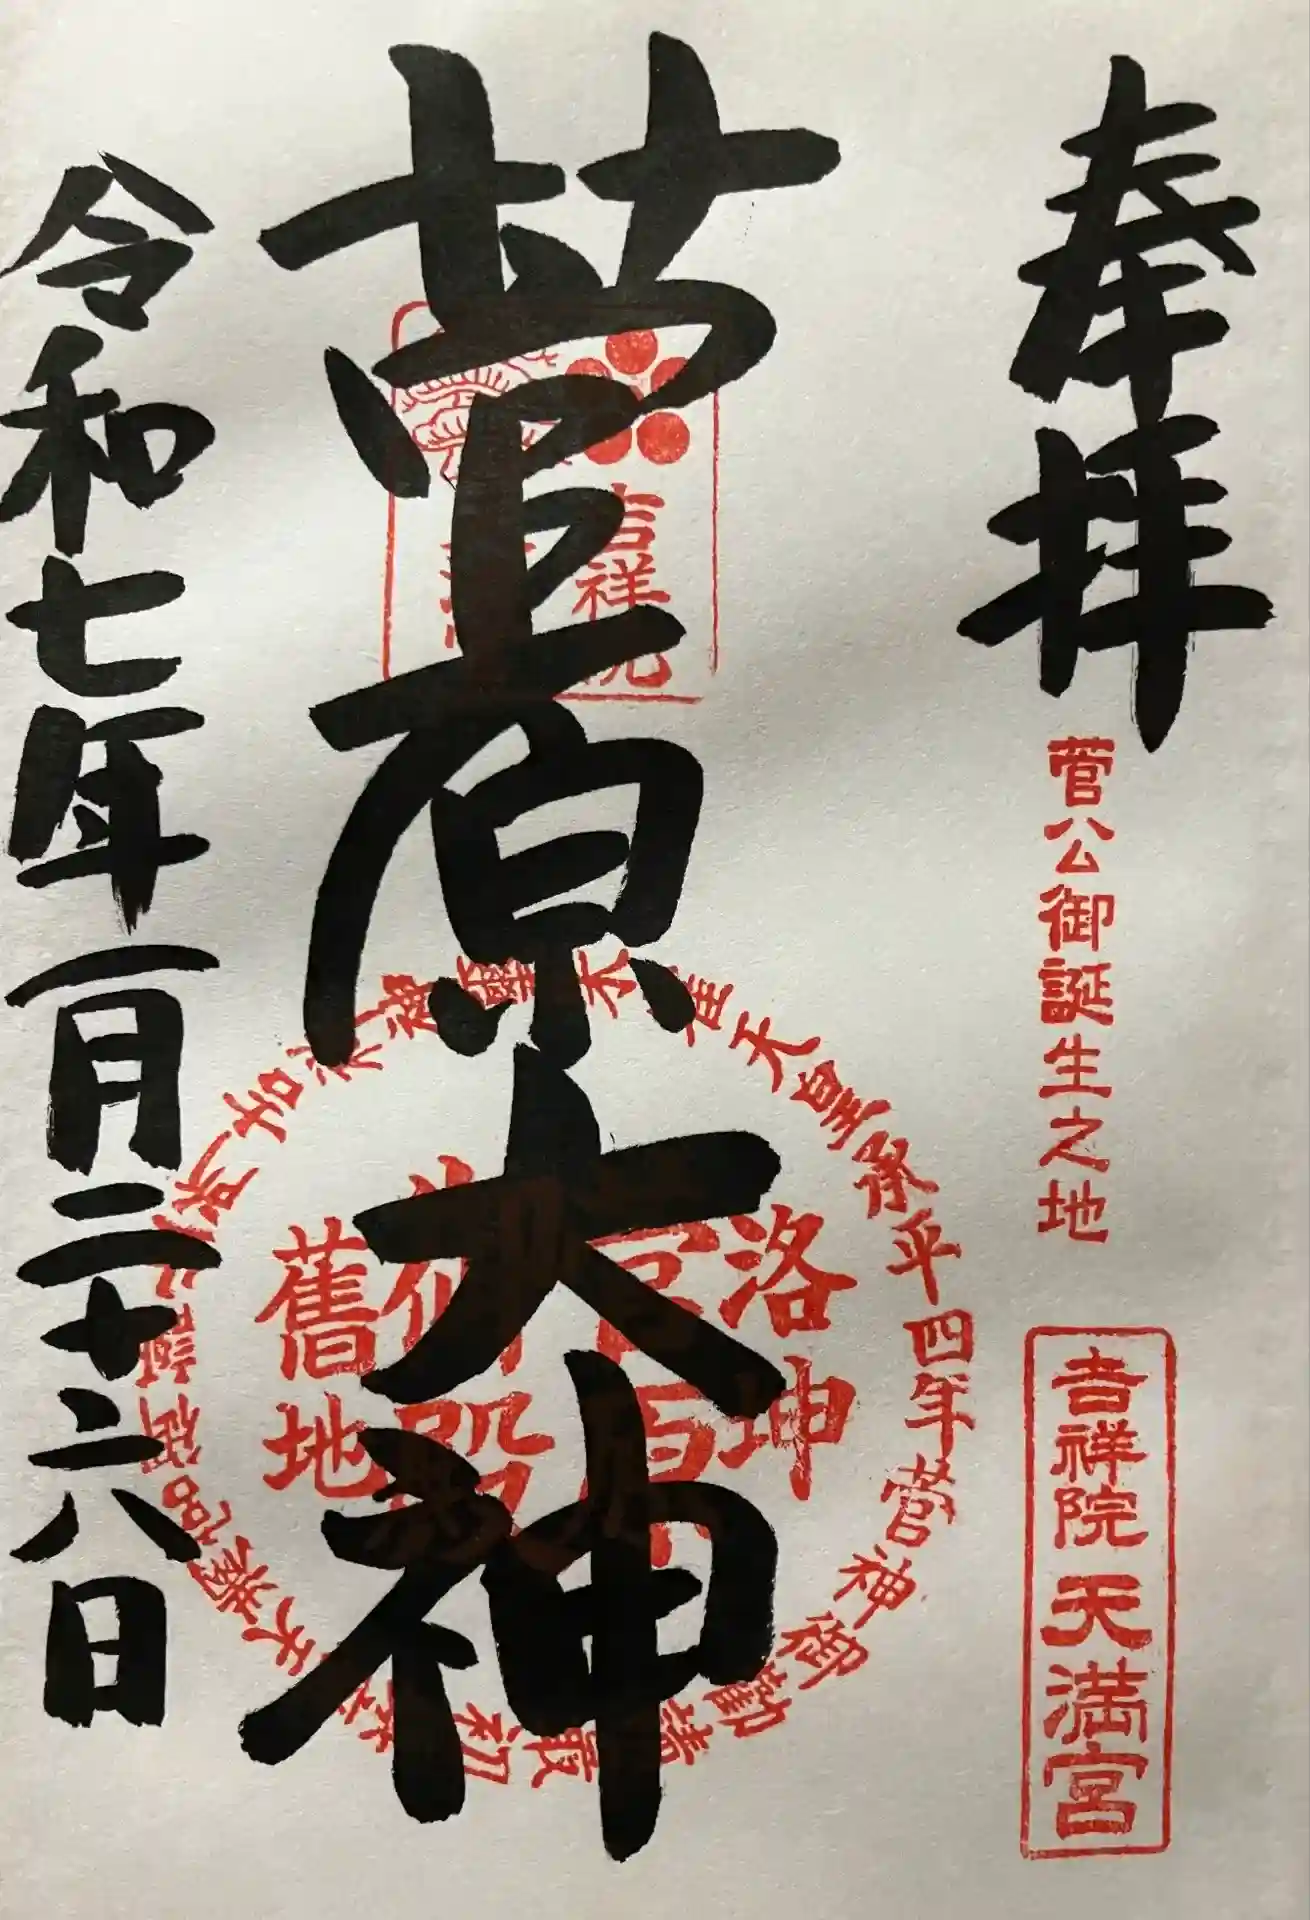 奉拝
菅公御誕生之地
吉祥院天満宮
菅原大神
吉祥院
朱雀天皇承平四年菅神御勸請最初
洛坤
舊地
令和七年一月二十六日